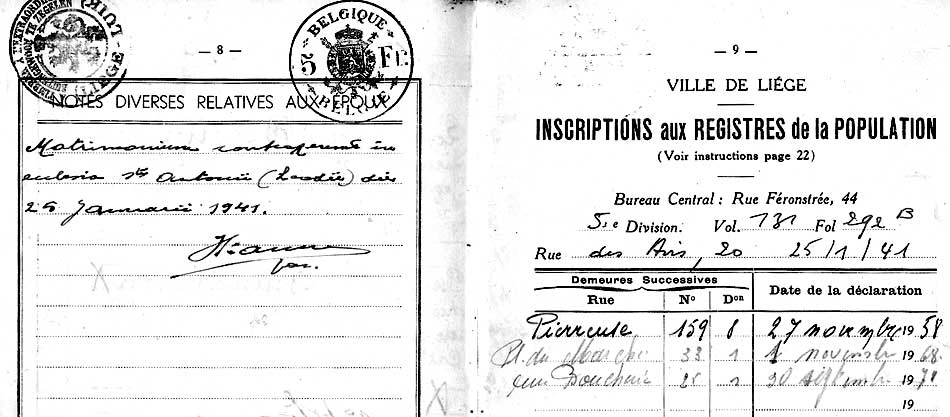 — 8 —
BELGIQUE
5 Fr
BELGIE
LIÉGE
NOTES DIVERSES RELATIVES AUX ÉPOUX
Matrimonium contraxerunt in
ecclesia Sti Antonii (Leodii) die
25 Januarii 1941.
— 9 —
VILLE DE LIÉGE
INSCRIPTIONS aux REGISTRES de la POPULATION
(Voir instructions page 22)
Bureau Central : Rue Féronstrée, 44
5e Division. Vol. 131 Fol 292 B
Rue des Airs, 20 25/1/41
Demeures Successives
Rue No Don Date de la déclaration
Pierreuse 159 8 27 novembre 1958
Pl. du Marché 33 1 novembre 1968
1 30 septembre 1971
19